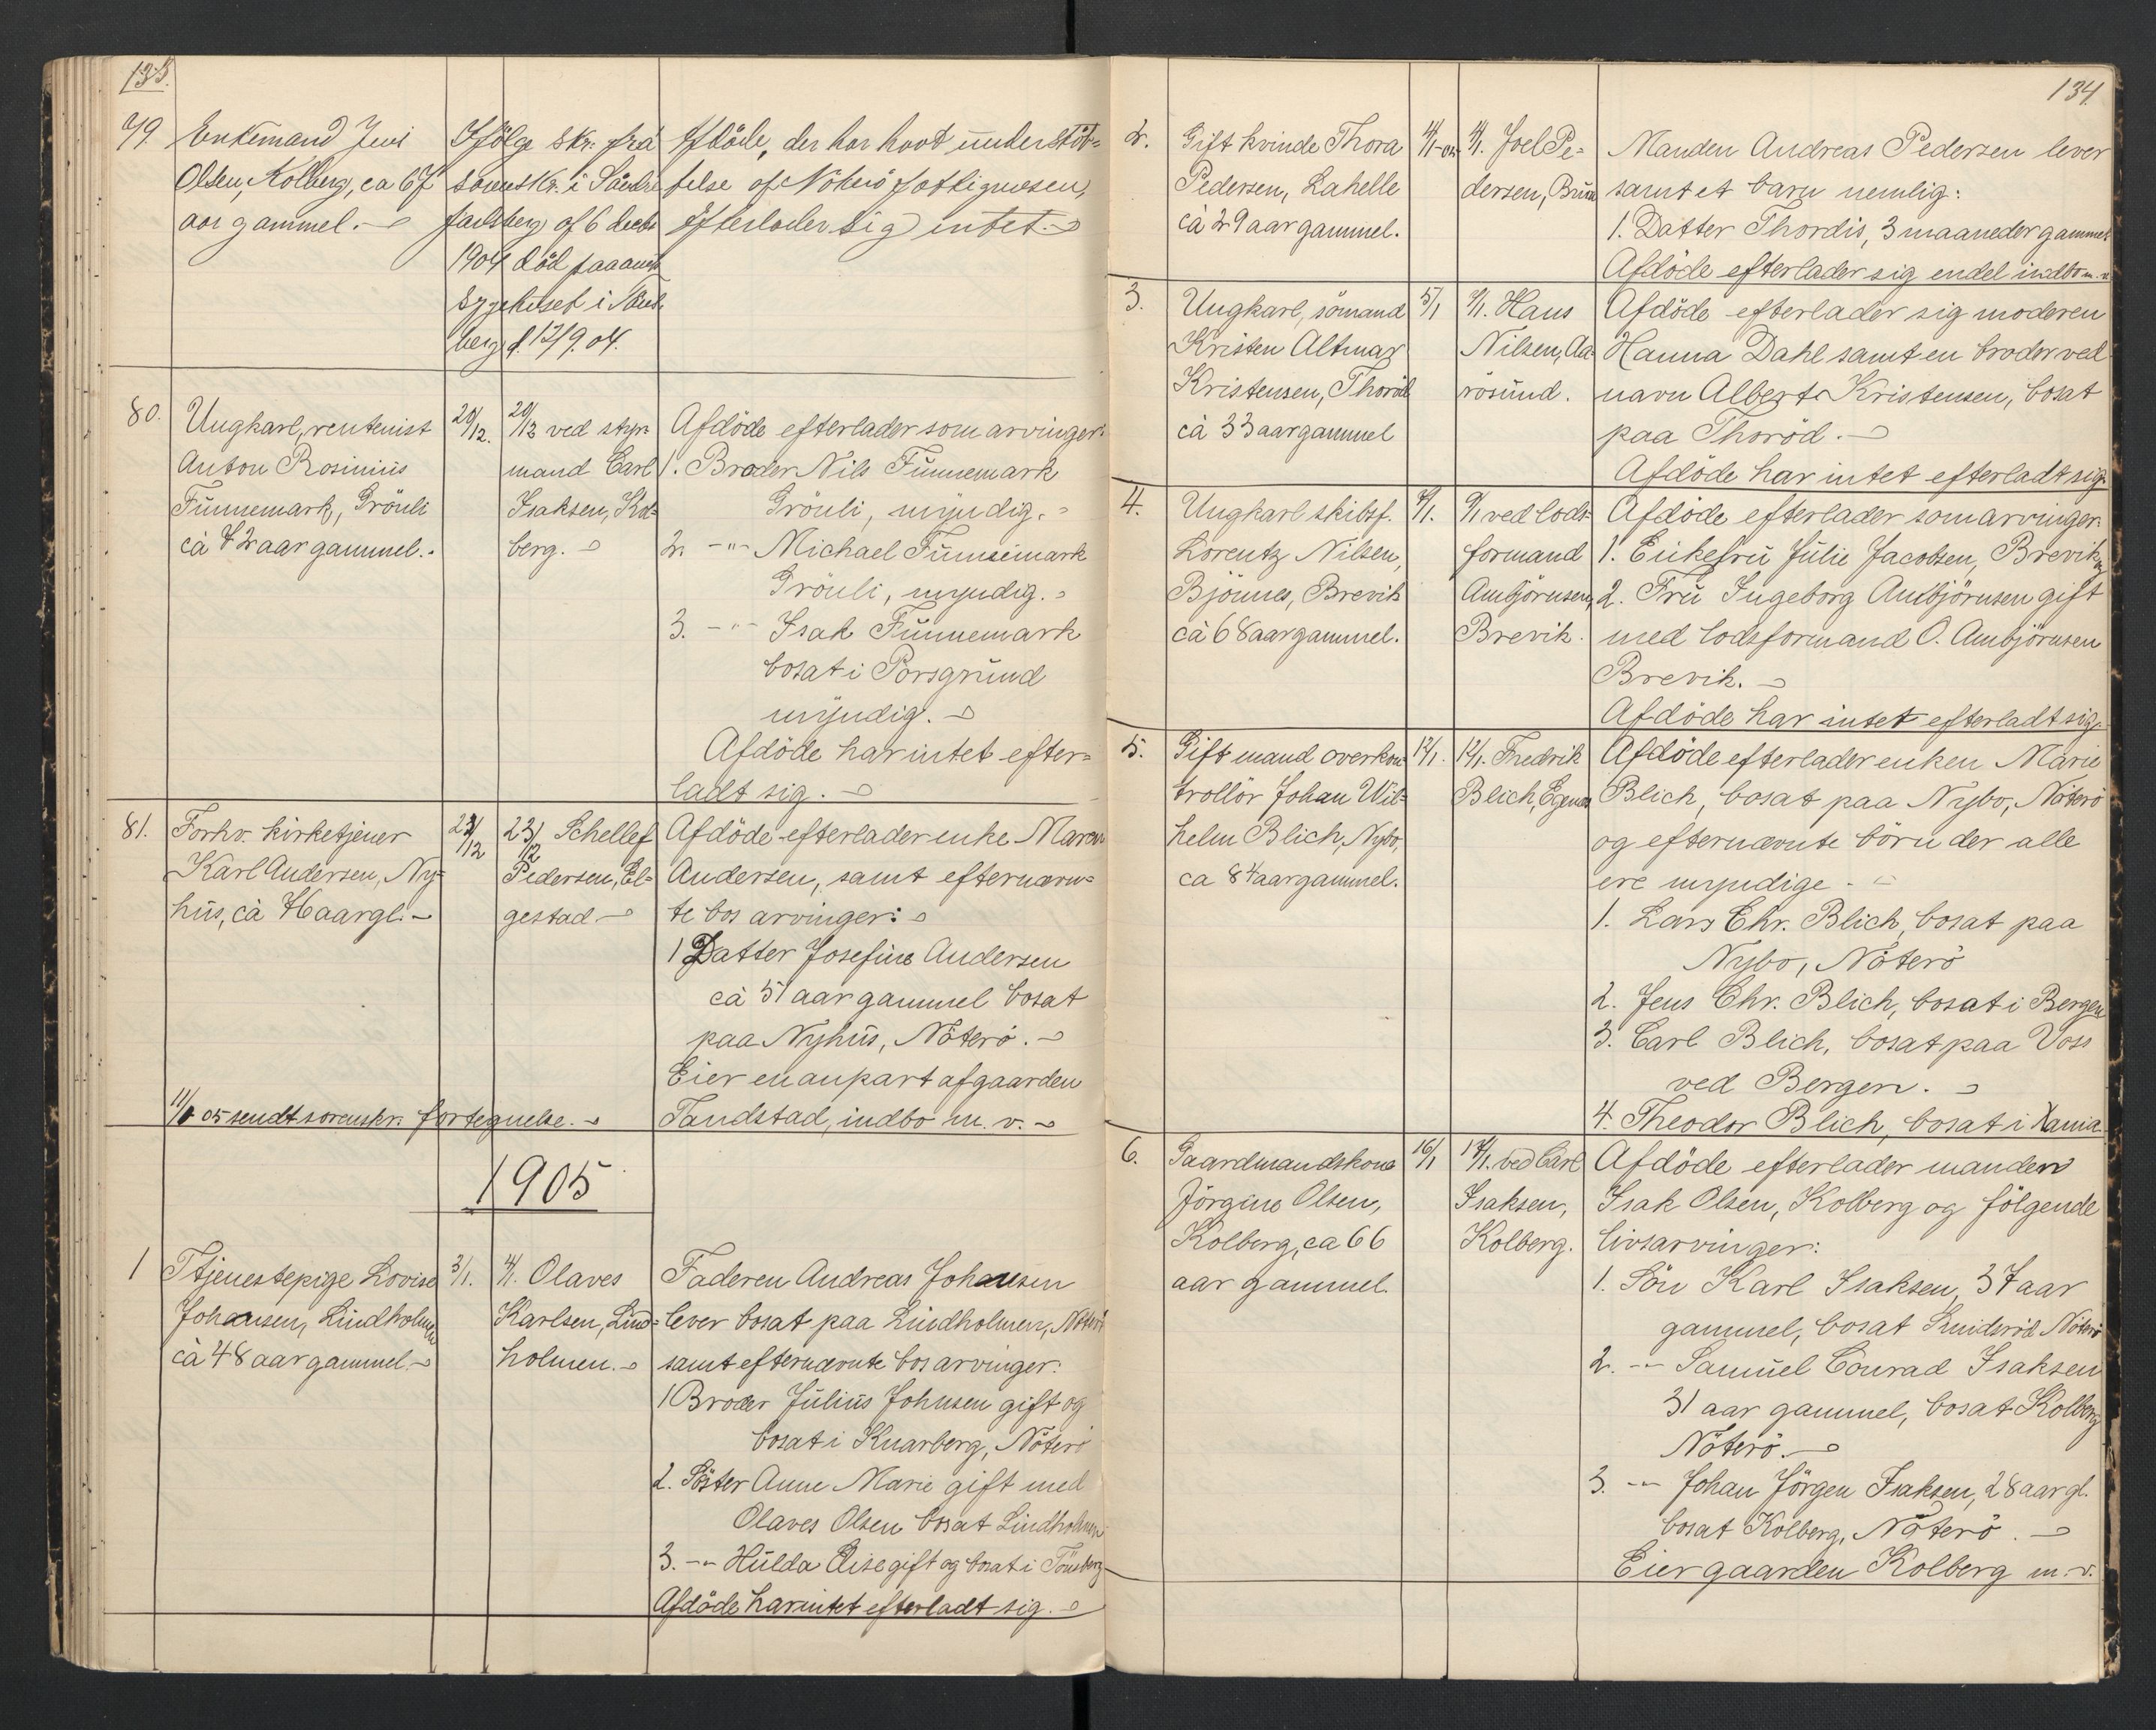 133.
79. Enkemand Jens
Olsen, Kolberg, ca 67
aar gammel.
Ifölge skr. fra
sorenskr. i Söndre
Jarlsberg af 6 decbr
1904 död paa amts
sygehuset i Töns-
berg d. 12/9.04.
Afdöde, der har havt understöt-
telse af Nöterö fattigvæsen,
efterlader sig intet.
80. Ungkarl, rentenist
Anton Rosinius
Funnemark, Grönli
cà 72 aar gammel.
20/12.
20/12 ved styr-
mand Carl
Isaksen, Kol-
berg.
Afdöde efterlader som arvinger:
1. Broder Nils Funnemark
Grönli, myndig.
2. -"- Michael Funnemark
Grönli, myndig.
3. -"- Isak Funnemark
bosat i Porsgrund
myndig.
Afdöde har intet efter-
ladt sig.
81. Forhv. kirketjener
Karl Andersen, Ny-
hus, cà aargl.
23/12
23/12 Schellef
Pedersen, El-
gestad
Afdöde efterlader enke Maren
Andersen, samt efternævn-
te bos arvinger:
1 Datter Josefine Andersen
cà 51 aar gammel bosat
paa Nyhus, Nöterö.
Eier en anpart af gaarden
Tandstad, indbo m. v.
05 sendt sorenskr. fortegnelse.
1905
1 Tjenestepige Lovise
Johansen, Lindholmen
cà 48 aar gammel.
3/1.
4/1. Olaves
Karlsen, Lind-
holmen.
Faderen Andreas Johansen
lever bosat paa Lindholmen, Nöterö
samt efternævnte bos arvinger:
1 Broder Julius Johnsen gift og
bosat i Knarberg, Nöterö
2. Söster Anne Marie gift med
Olaves Olsen bosat Lindholmen
3. -"- Hulda Elise gift og bosat i Tönsberg
Afdöde har intet efterladt sig.
134
2. Gift kvinde Thora
Pedersen, Lahelle
cà 29 aar gammel.
4/1-05
4/1. Joel Pe-
dersen, Brua
Manden Andreas Pedersen lever
samt et barn nemlig:
1. Datter Thordis, 3 maaneder gammel
Afdöde efterlader sig endel indbo m. v.
3. Ungkarl, sömand
Kristen Altmar
Kristensen, Thoröd
cà 33 aar gammel
5/1
7/1. Hans
Nilsen, Aa-
rösund.
Afdöde efterlader sig moderen
Hanna Dahl samt en broder ved
navn Albert Kristensen, bosat
paa Thoröd.
Afdöde har intet efterladt sig.
4. Ungkarl skibsf.
Lorentz Nilsen,
Bjönnes, Brevik
cà 68 aar gammel.
9/1 ved lods-
formand
Ambjörnsen,
Brevik.
Afdöde efterlader som arvinger:
1. Enkefru Julie Jacobsen, Brevik, og
2. Fru Ingeborg Ambjörnsen gift
med lodsformand O. Ambjörnsen
Brevik.
Afdöde har intet efterladt sig.
5. Gift mand overkon-
trollör Johan Wil-
helm Blich, Nybo,
ca 84 aar gammel.
12/1.
12/1. Fredrik
Blich, Egenes
Afdöde efterlader enken Marie
Blich, bosat paa Nybo, Nöterö
og efternævnte börn der alle
ere myndige.
1. Lars Chr. Blich, bosat paa
Nybo, Nöterö
2. Jens Chr. Blich, bosat i Bergen
3. Carl Blich, bosat paa Voss
ved Bergen.
4. Theodor Blich, bosat i Xania.
6. Gaardmandskone
Jörgine Olsen,
Kolberg, ca 66
aar gammel.
16/1
17/1. ved Carl
Isaksen,
Kolberg.
Afdöde efterlader manden
Isak Olsen, Kolberg og fölgende
livsarvinger:
1. Sön Karl Isaksen, 37 aar
gammel, bosat Smideröd Nöterö
2. -"- Samuel Conrad Isaksen
31 aar gammel, bosat Kolberg
Nöterö.
3. -"- Johan Jörgen Isaksen, 28 aar gl.
bosat Kolberg, Nöterö.
Eier gaarden Kolberg m. v.